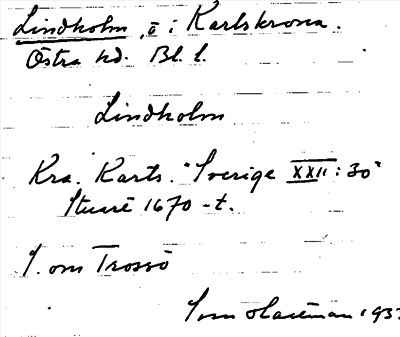 Lindholm, ö i Karlskrona.
Östra hd. Bl. l.
Lindholm
Kra. Karts. "Sverige XXII:30"
Stuart 1670-t.
S. om Trossö
193